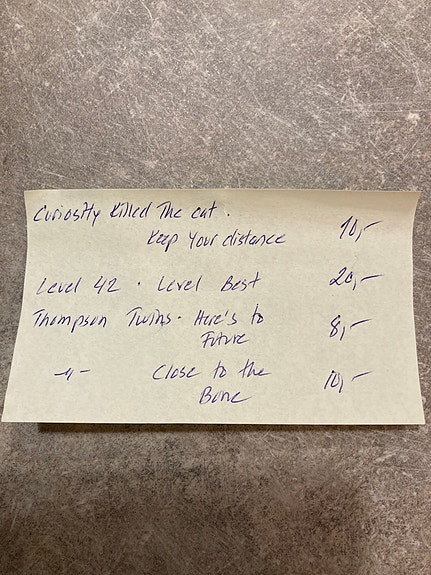 Curiosity Killed The cat.
Keep Your distance 10,-
Level 42 · Level Best 20,-
Thompson Twins · Here's to 8,-
Future
-"- Close to the 10,-
Bone